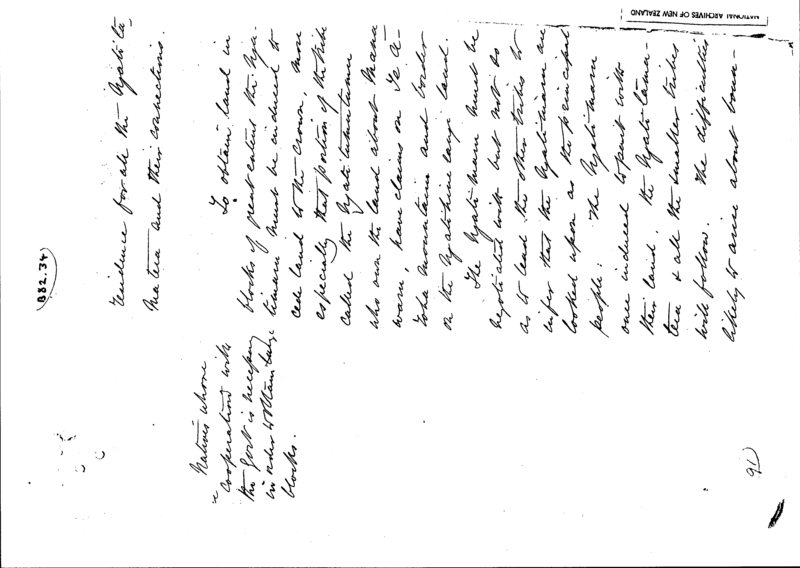 NATIONAL ARCHIVES OF NEW ZEALAND
B82.34
residence for all the Ngatita-
matera and their connections.
Natives whose
cooperation with
the Govt is necessary
in order to obtain large
blocks.
To obtain land in
blocks of great extent the Nga-
timaru must be induced to
cede land to the Crown, more
especially that portion of the tribe
called the Ngatitumutumu
who own the land about Mana
waru, have claims on Te A-
roha mountain and border
on the Ngatihinerangi land.
The Ngatimaru must be
negotiated with but not so
as to lead the other tribes to
infer that the Ngatimaru are
looked upon as the principal
people. The Ngatimaru
once induced to part with
their land, the Ngatitama-
tera & all the smaller tribes
will follow. The difficulties
likely to arise about boun-